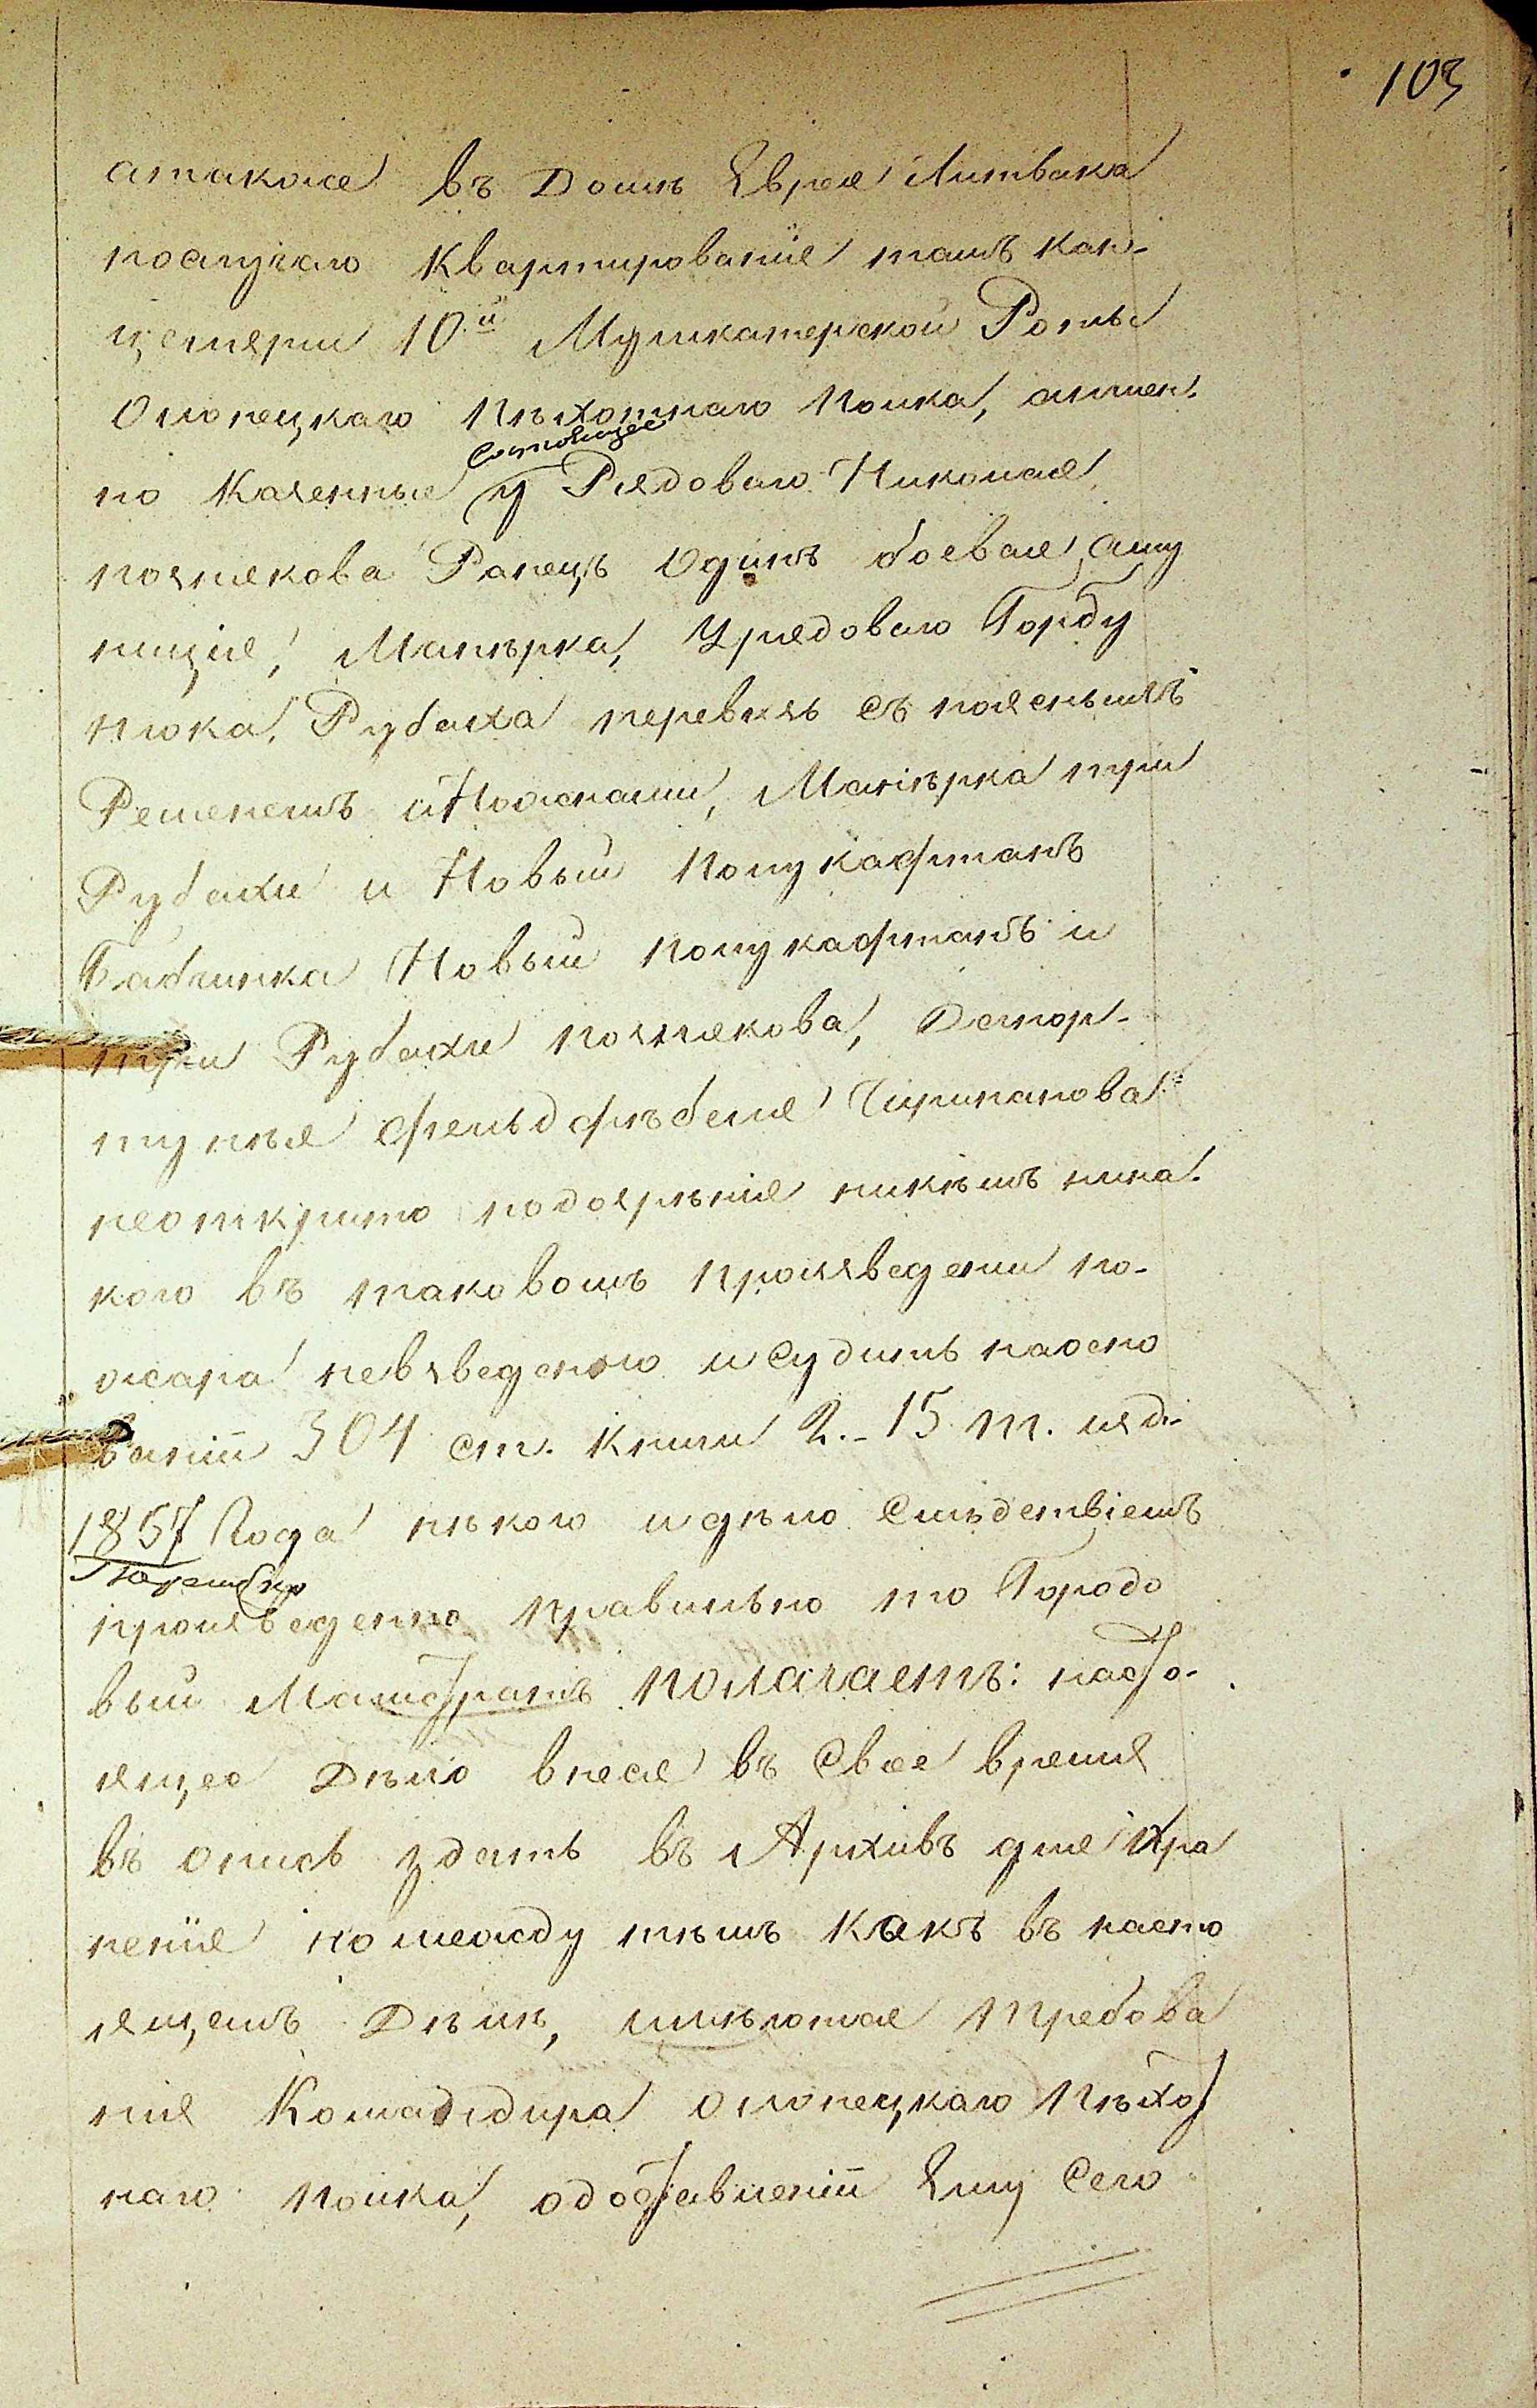 103
атакоже въ Домѣ Еврея Литвака
послучаю Квартированія тамъ Кан-
целяріи 10й Мушкатерской Роты
Олонецкаго Пѣхотнаго Полка, аимен.
но Казенные
состоящее
у Рядоваго Николая
познякова Ранецъ Одинъ боевая аму
ниція, Манѣрка, Урядоваго Горбу
нюка, Рубаха перевязь съ пояснымъ
Ременемъ иНожнами, Манѣрка три
Рубахи и Новый Полукафтанъ
Бабчинка Новый полукафтанъ и
три Рубахи познякова,
фельдфѣбеля
неоткрыто подозрѣнія никѣмъ нина.
кого въ таковомъ произведеніи по-
жара невзведенного иСудить наосно
ваніи 304 ст. Книги 2.-15 т. изд.
1857 Года нѣкого идѣло Слѣдствіемъ
произведенно правильно то Городо
вый Магистратъ полагаетъ: насто-
ящее Дѣло внеся въ Свое время
въ опись здать въ Архивъ для Хра
ненія но между тѣмъ Какъ въ насто
ящемъ Дѣлѣ, имѣются требова
ніе Командира олонецкаго Пѣхот
наго полка, одоставленіи Ему Сего